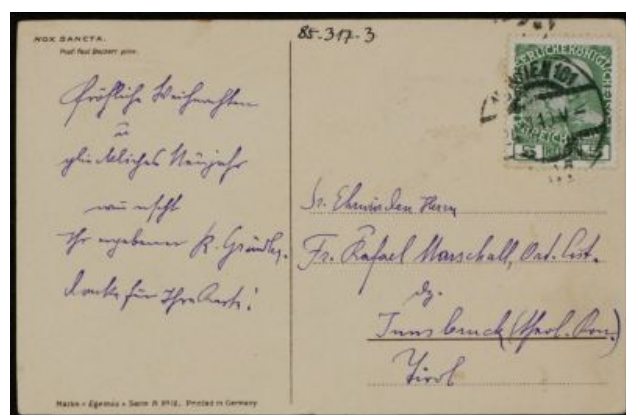 NOX SANCTA.
Prof. Paul Beckert pinx.
85-317-3
WIEN 101
5 5
fröhliche Weihnachten
u
glückliches Neujahr
wünscht
Ihr ergebener R.
Danke für Ihre Karte!
Sr. Ehrwürden Herrn
Fr. Rafael Marschall, Ord. Cist.
dz.
Innsbruck (theol. Kon.)
Tirol
Marke « Egemes » Serie A Nº12, Printed in Germany